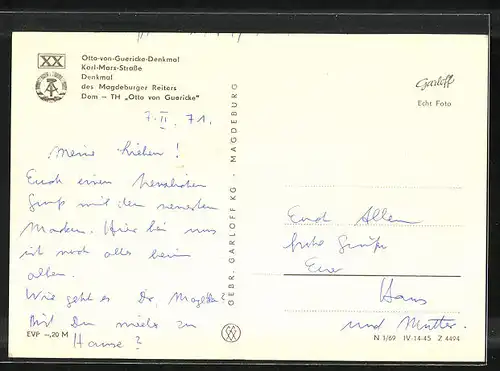 XX
Otto-von-Guericke-Denkmal
Karl-Marx-Straße
Denkmal
des Magdeburger Reiters
Dom – TH „Otto von Guericke"
Garloff
Echt Foto
7. II. 71.
Meine Lieben!
Euch einen herzlichen
Gruß mit den neuesten
Marken. Hier bei uns
ist noch alles beim
alten.
Wie geht es Dir,
Bist Du wieder zu
Hause?
EVP –,20 M
GEBR. GARLOFF KG · MAGDEBURG
Euch Allen
frohe Grüße
Euer
Hans
und Mutter.
N 1/69 IV-14-45 Z 4494